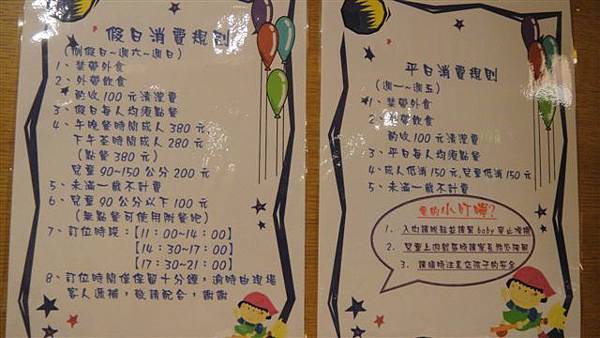 假日消費規則
(例假日~週六~週日)
1、禁帶外食
2、外帶飲食
酌收100元清潔費
3、假日每人均須點餐
4、午晚餐時間成人380元
下午茶時間成人280元
(點餐380元)
兒童90~150公分200元
5、未滿一歲不計費
6、兒童90公分以下100元
(無點餐可使用附餐吧)
7、訂位時段:【11:00~14:00】
【14:30~17:00】
【17:30~21:00】
8、訂位時間僅保留十分鐘,逾時由現場
客人遞補,敬請配合,謝謝
平日消費規則
(週一~週五)
1、禁帶外食
2、外帶飲食
酌收100元清潔費
3、平日每人均須點餐
4、成人低消150元,兒童低消150元
5、未滿一歲不計費
小叮嚀?
1. 入內請脫鞋並請幫baby穿止滑襪
2. 兒童上廁所
3. 請隨時注意您孩子的安全